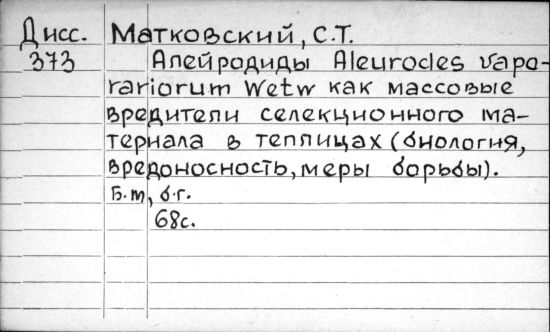 Дисс. Матковский, С.Т.
373 Алейродиды Aleurodes vapo-
rariorum Wetw как массовые
вредители селекционного ма-
териала в теплицах (биология,
вредоносность, меры борьбы).
Б.м, б.г.
68с.